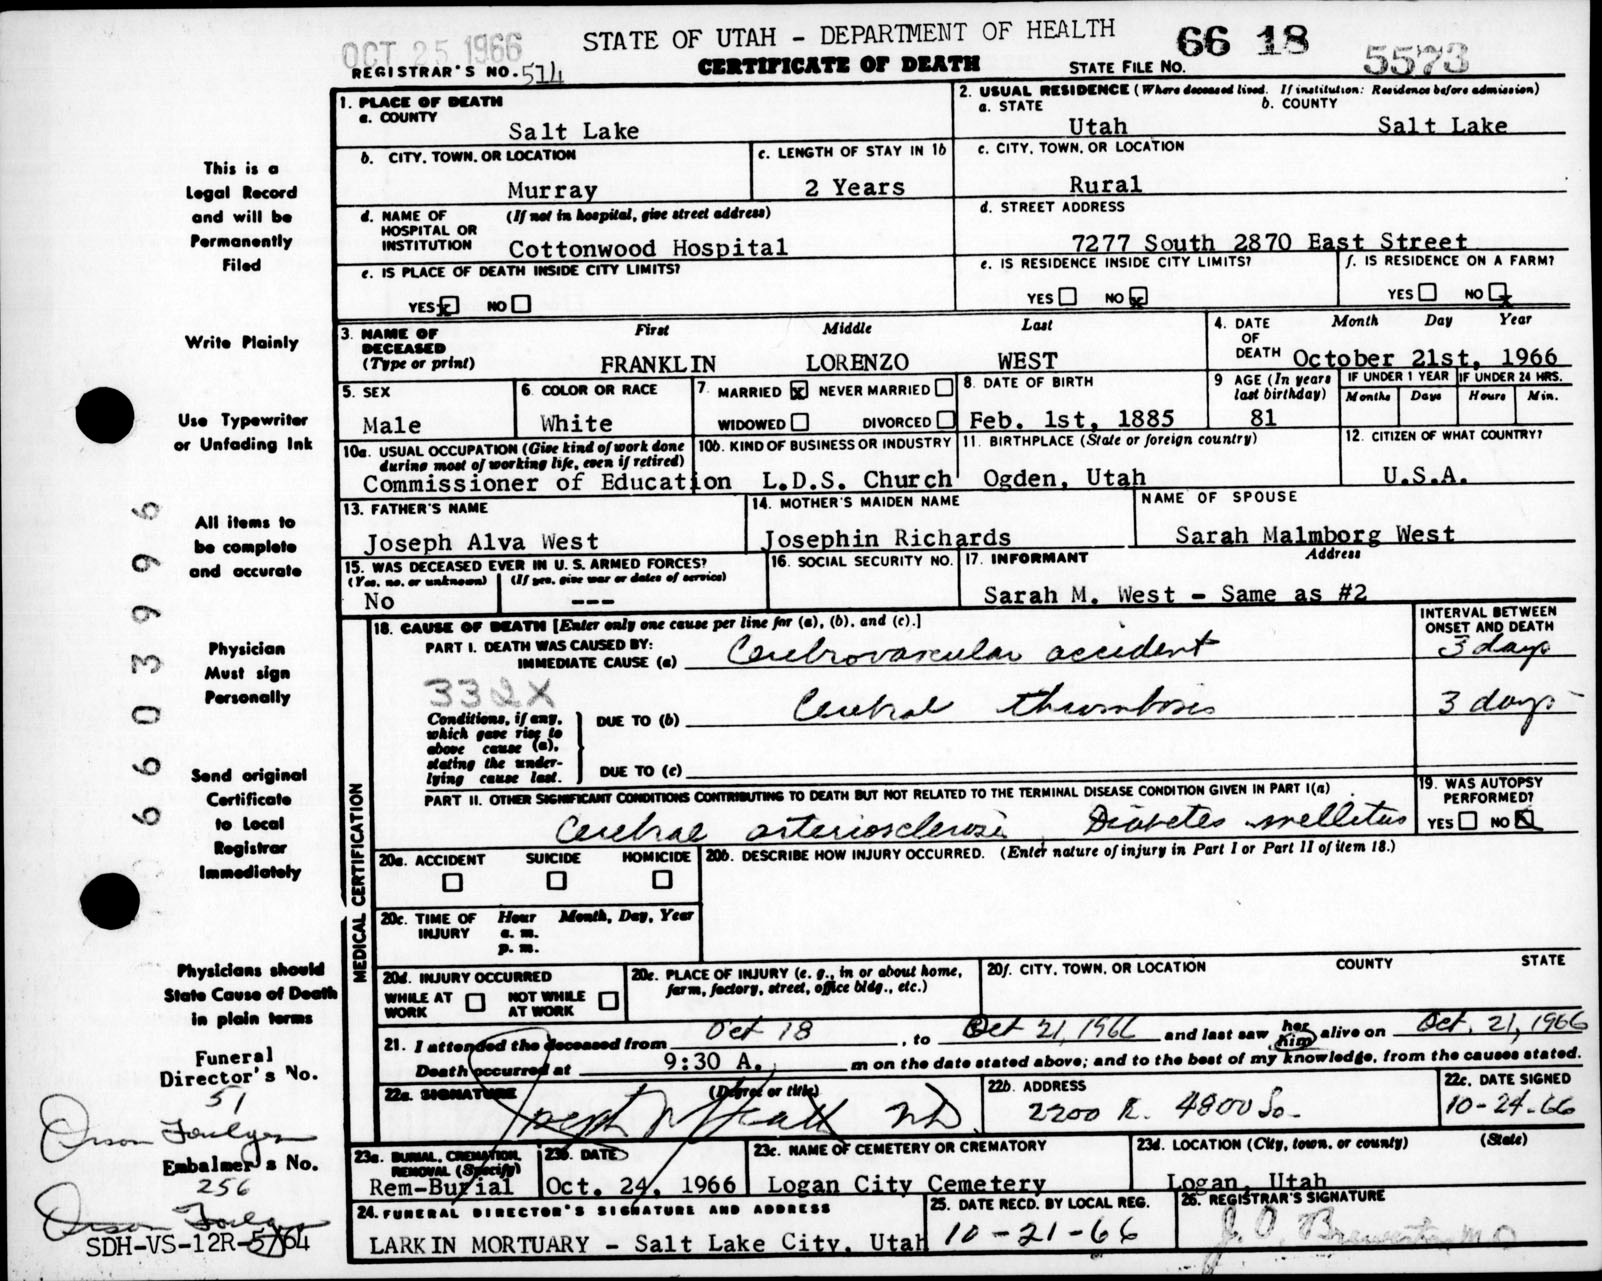 OCT 25 1966
STATE OF UTAH - DEPARTMENT OF HEALTH
66 18
5573
REGISTRAR'S NO. 514
CERTIFICATE OF DEATH
STATE FILE NO.
1. PLACE OF DEATH
a. COUNTY
Salt Lake
2. USUAL RESIDENCE (Where deceased lived. If institution: Residence before admission)
a. STATE
Utah
b. COUNTY
Salt Lake
b. CITY, TOWN, OR LOCATION
Murray
c. LENGTH OF STAY IN 1b
2 Years
c. CITY, TOWN, OR LOCATION
Rural
d. NAME OF HOSPITAL OR INSTITUTION
(If not in hospital, give street address)
Cottonwood Hospital
d. STREET ADDRESS
7277 South 2870 East Street
e. IS PLACE OF DEATH INSIDE CITY LIMITS?
YES x NO
e. IS RESIDENCE INSIDE CITY LIMITS?
YES NO x
f. IS RESIDENCE ON A FARM?
YES NO x
3. NAME OF DECEASED (Type or print)
First Middle Last
FRANKLIN LORENZO WEST
4. DATE OF DEATH
Month Day Year
October 21st, 1966
5. SEX
Male
6. COLOR OR RACE
White
7. MARRIED x NEVER MARRIED
WIDOWED DIVORCED
8. DATE OF BIRTH
Feb. 1st, 1885
9 AGE (In years last birthday)
81
IF UNDER 1 YEAR
Months Days
IF UNDER 24 HRS.
Hours Min.
10a. USUAL OCCUPATION (Give kind of work done during most of working life, even if retired)
Commissioner of Education
10b. KIND OF BUSINESS OR INDUSTRY
L.D.S. Church
11. BIRTHPLACE (State or foreign country)
Ogden, Utah
12. CITIZEN OF WHAT COUNTRY?
U.S.A.
13. FATHER'S NAME
Joseph Alva West
14. MOTHER'S MAIDEN NAME
Josephin Richards
NAME OF SPOUSE
Sarah Malmborg West
15. WAS DECEASED EVER IN U. S. ARMED FORCES?
(Yes, no, or unknown) (If yes, give war or dates of service)
No ---
16. SOCIAL SECURITY NO.
17. INFORMANT Address
Sarah M. West - Same as #2
MEDICAL CERTIFICATION
18. CAUSE OF DEATH [Enter only one cause per line for (a), (b), and (c).]
INTERVAL BETWEEN ONSET AND DEATH
PART I. DEATH WAS CAUSED BY:
IMMEDIATE CAUSE (a) Cerebrovascular accident 3 days
332X
Conditions, if any, which gave rise to above cause (a), stating the underlying cause last.
DUE TO (b) Cerebral thrombosis 3 days
DUE TO (c)
PART II. OTHER SIGNIFICANT CONDITIONS CONTRIBUTING TO DEATH BUT NOT RELATED TO THE TERMINAL DISEASE CONDITION GIVEN IN PART I(a)
Cerebral arteriosclerosis Diabetes mellitus
19. WAS AUTOPSY PERFORMED?
YES NO x
20a. ACCIDENT SUICIDE HOMICIDE
20b. DESCRIBE HOW INJURY OCCURRED. (Enter nature of injury in Part I or Part II of item 18.)
20c. TIME OF INJURY
Hour Month, Day, Year
a. m.
p. m.
20d. INJURY OCCURRED
WHILE AT WORK NOT WHILE AT WORK
20e. PLACE OF INJURY (e. g., in or about home, farm, factory, street, office bldg., etc.)
20f. CITY, TOWN, OR LOCATION COUNTY STATE
21. I attended the deceased from Oct 18, to Oct 21, 1966 and last saw her him alive on Oct. 21, 1966
Death occurred at 9:30 A. m on the date stated above; and to the best of my knowledge, from the causes stated.
22a. SIGNATURE (Degree or title)
Joseph MD
22b. ADDRESS
2200 E. 4800 So.
22c. DATE SIGNED
10-24-66
23a. BURIAL, CREMATION, REMOVAL (Specify)
Rem-Burial
23b. DATE
Oct. 24, 1966
23c. NAME OF CEMETERY OR CREMATORY
Logan City Cemetery
23d. LOCATION (City, town, or county) (State)
Logan, Utah
24. FUNERAL DIRECTOR'S SIGNATURE AND ADDRESS
LARKIN MORTUARY - Salt Lake City, Utah
25. DATE RECD. BY LOCAL REG.
10-21-66
26. REGISTRAR'S SIGNATURE
This is a
Legal Record
and will be
Permanently
Filed
Write Plainly
Use Typewriter
or Unfading Ink
All items to
be complete
and accurate
Physician
Must sign
Personally
Send original
Certificate
to Local
Registrar
Immediately
Physicians should
State Cause of Death
in plain terms
Funeral
Director's No.
51
Embalmer's No.
256
SDH-VS-12R-5/64
66039966